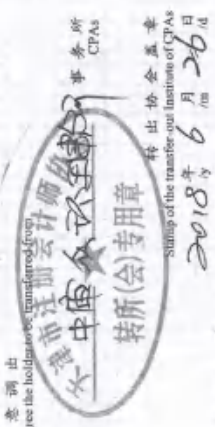 意调出
ree the holder to be transferred from
事务所
CPAs
天津市注册会计师
转所(会)专用章
转出协会盖章
Stamp of the transfer-out Institute of CPAs
2018年 6 月 29 日
/y /m /d